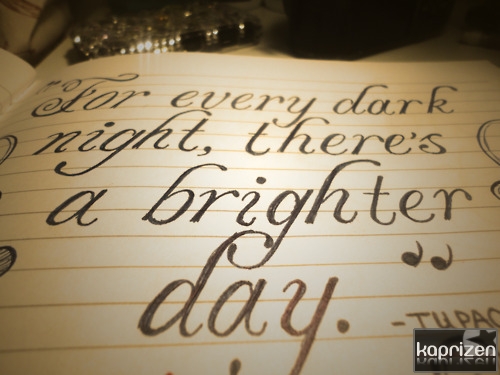 "For every dark
night, there's
a brighter
day."
-TUPAC
kaprizen